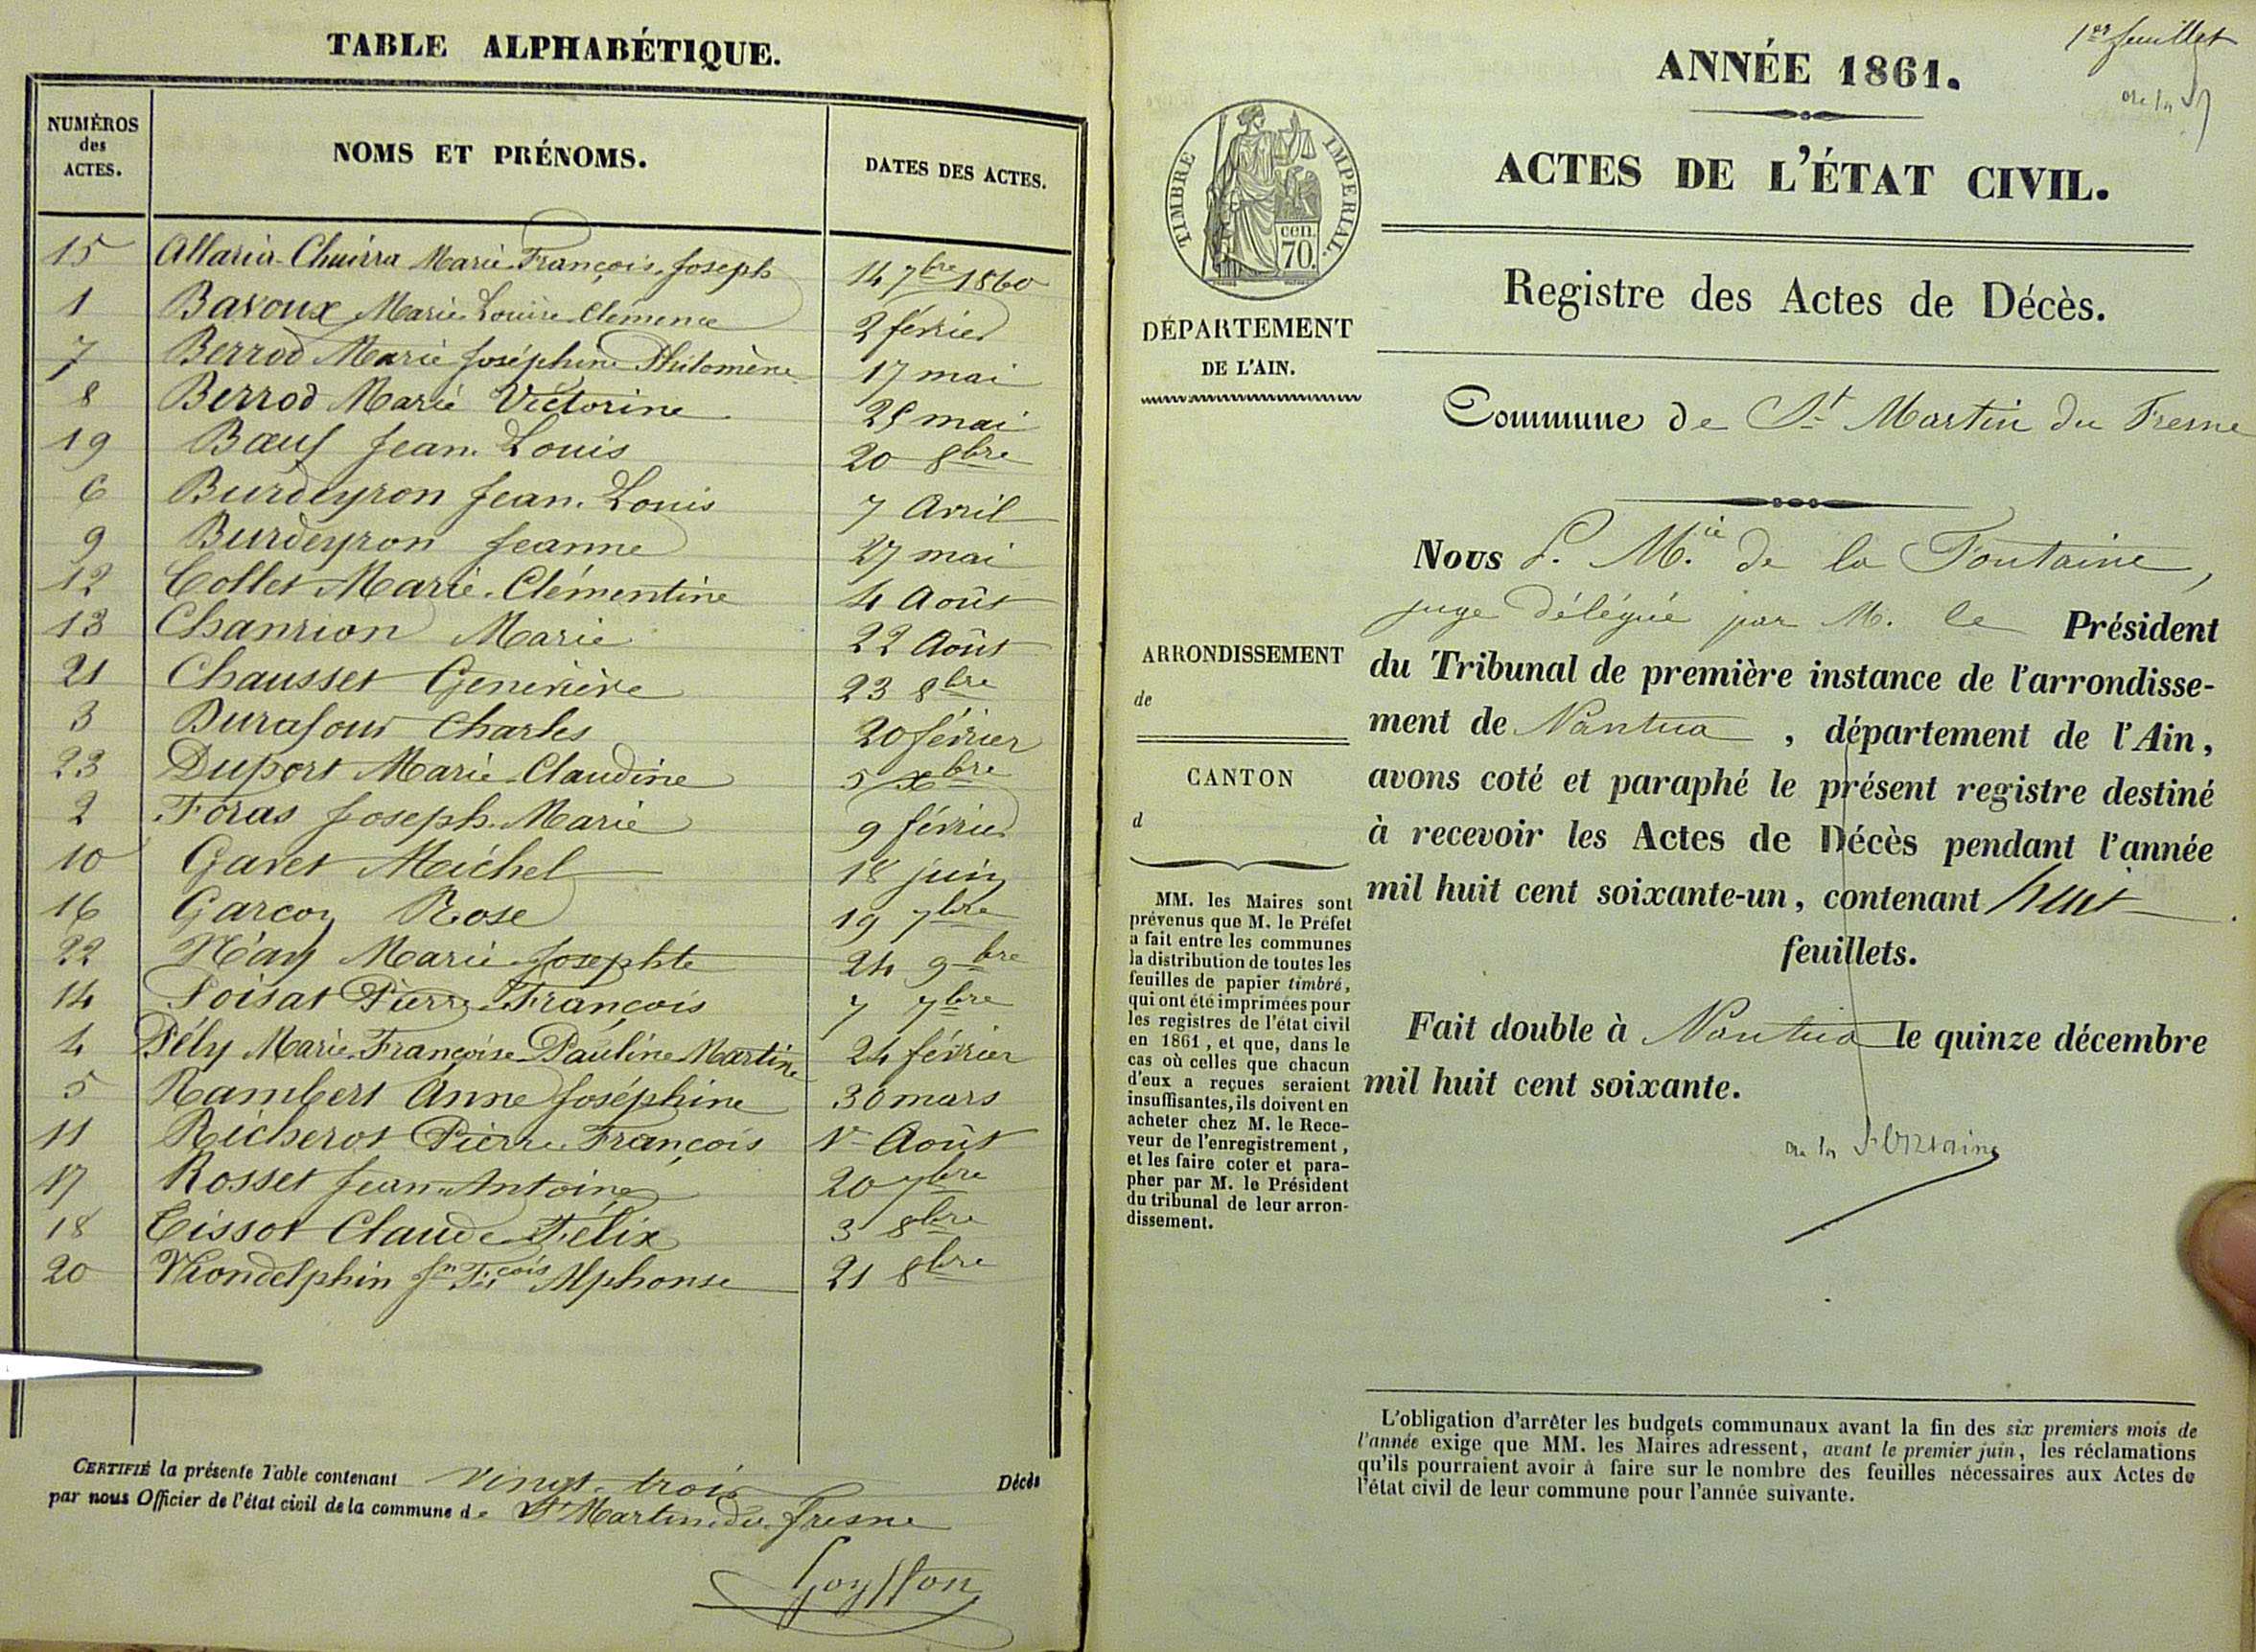 TABLE ALPHABÉTIQUE.
NUMÉROS des ACTES. NOMS ET PRÉNOMS. DATES DES ACTES.
15 Allaria-Chuirra Marie François Joseph 14 7bre 1860
1 Bavoux Marie Louise Clémence 2 février
7 Berrod Marie Joséphine Philomène 17 mai
8 Berrod Marie Victorine 25 mai
19 Bœuf Jean Louis 20 8bre
6 Burdeyron Jean Louis 7 Avril
9 Burdeyron Jeanne 27 mai
12 Collet Marie Clémentine 4 Août
13 Chanrion Marie 22 Août
21 Chausset Geneviève 23 8bre
3 Durafour Charles 20 février
23 Duport Marie Claudine 5 xbre
2 Foras Joseph Marie 9 février
10 Gavet Michel 18 juin
16 Garçon Rose 19 7bre
22 Marie Josephte 24 9bre
14 Poisat Pierre François 7 7bre
4 Pély Marie Françoise Pauline Martine 24 février
5 Rambert Anne Joséphine 30 mars
11 Richerot Pierre François 1er Août
17 Rosset Jean Antoine 20 7bre
18 Tissot Claude Félix 3 8bre
20 Viondelphin Jn Frçois Alphonse 21 8bre
CERTIFIÉ la présente Table contenant vingt-trois Décès
par nous Officier de l'état civil de la commune de St Martin du fresne
Goyffon
1er feuillet
de la F
ANNÉE 1861.
ACTES DE L'ÉTAT CIVIL.
Registre des Actes de Décès.
TIMBRE IMPÉRIAL.
cen.
70.
DÉPARTEMENT
DE L'AIN.
Commune de St Martin du Fresne
ARRONDISSEMENT
de
CANTON
d
MM. les Maires sont
prévenus que M. le Préfet
a fait entre les communes
la distribution de toutes les
feuilles de papier timbré,
qui ont été imprimées pour
les registres de l'état civil
en 1861, et que, dans le
cas où celles que chacun
d'eux a reçues seraient
insuffisantes, ils doivent en
acheter chez M. le Rece-
veur de l'enregistrement,
et les faire coter et para-
pher par M. le Président
du tribunal de leur arron-
dissement.
Nous P. M.ie de la Fontaine,
juge délégué par M. le Président
du Tribunal de première instance de l'arrondisse-
ment de Nantua, département de l'Ain,
avons coté et paraphé le présent registre destiné
à recevoir les Actes de Décès pendant l'année
mil huit cent soixante-un, contenant huit
feuillets.
Fait double à Nantua le quinze décembre
mil huit cent soixante.
de la Fontaine
L'obligation d'arrêter les budgets communaux avant la fin des six premiers mois de
l'année exige que MM. les Maires adressent, avant le premier juin, les réclamations
qu'ils pourraient avoir à faire sur le nombre des feuilles nécessaires aux Actes de
l'état civil de leur commune pour l'année suivante.